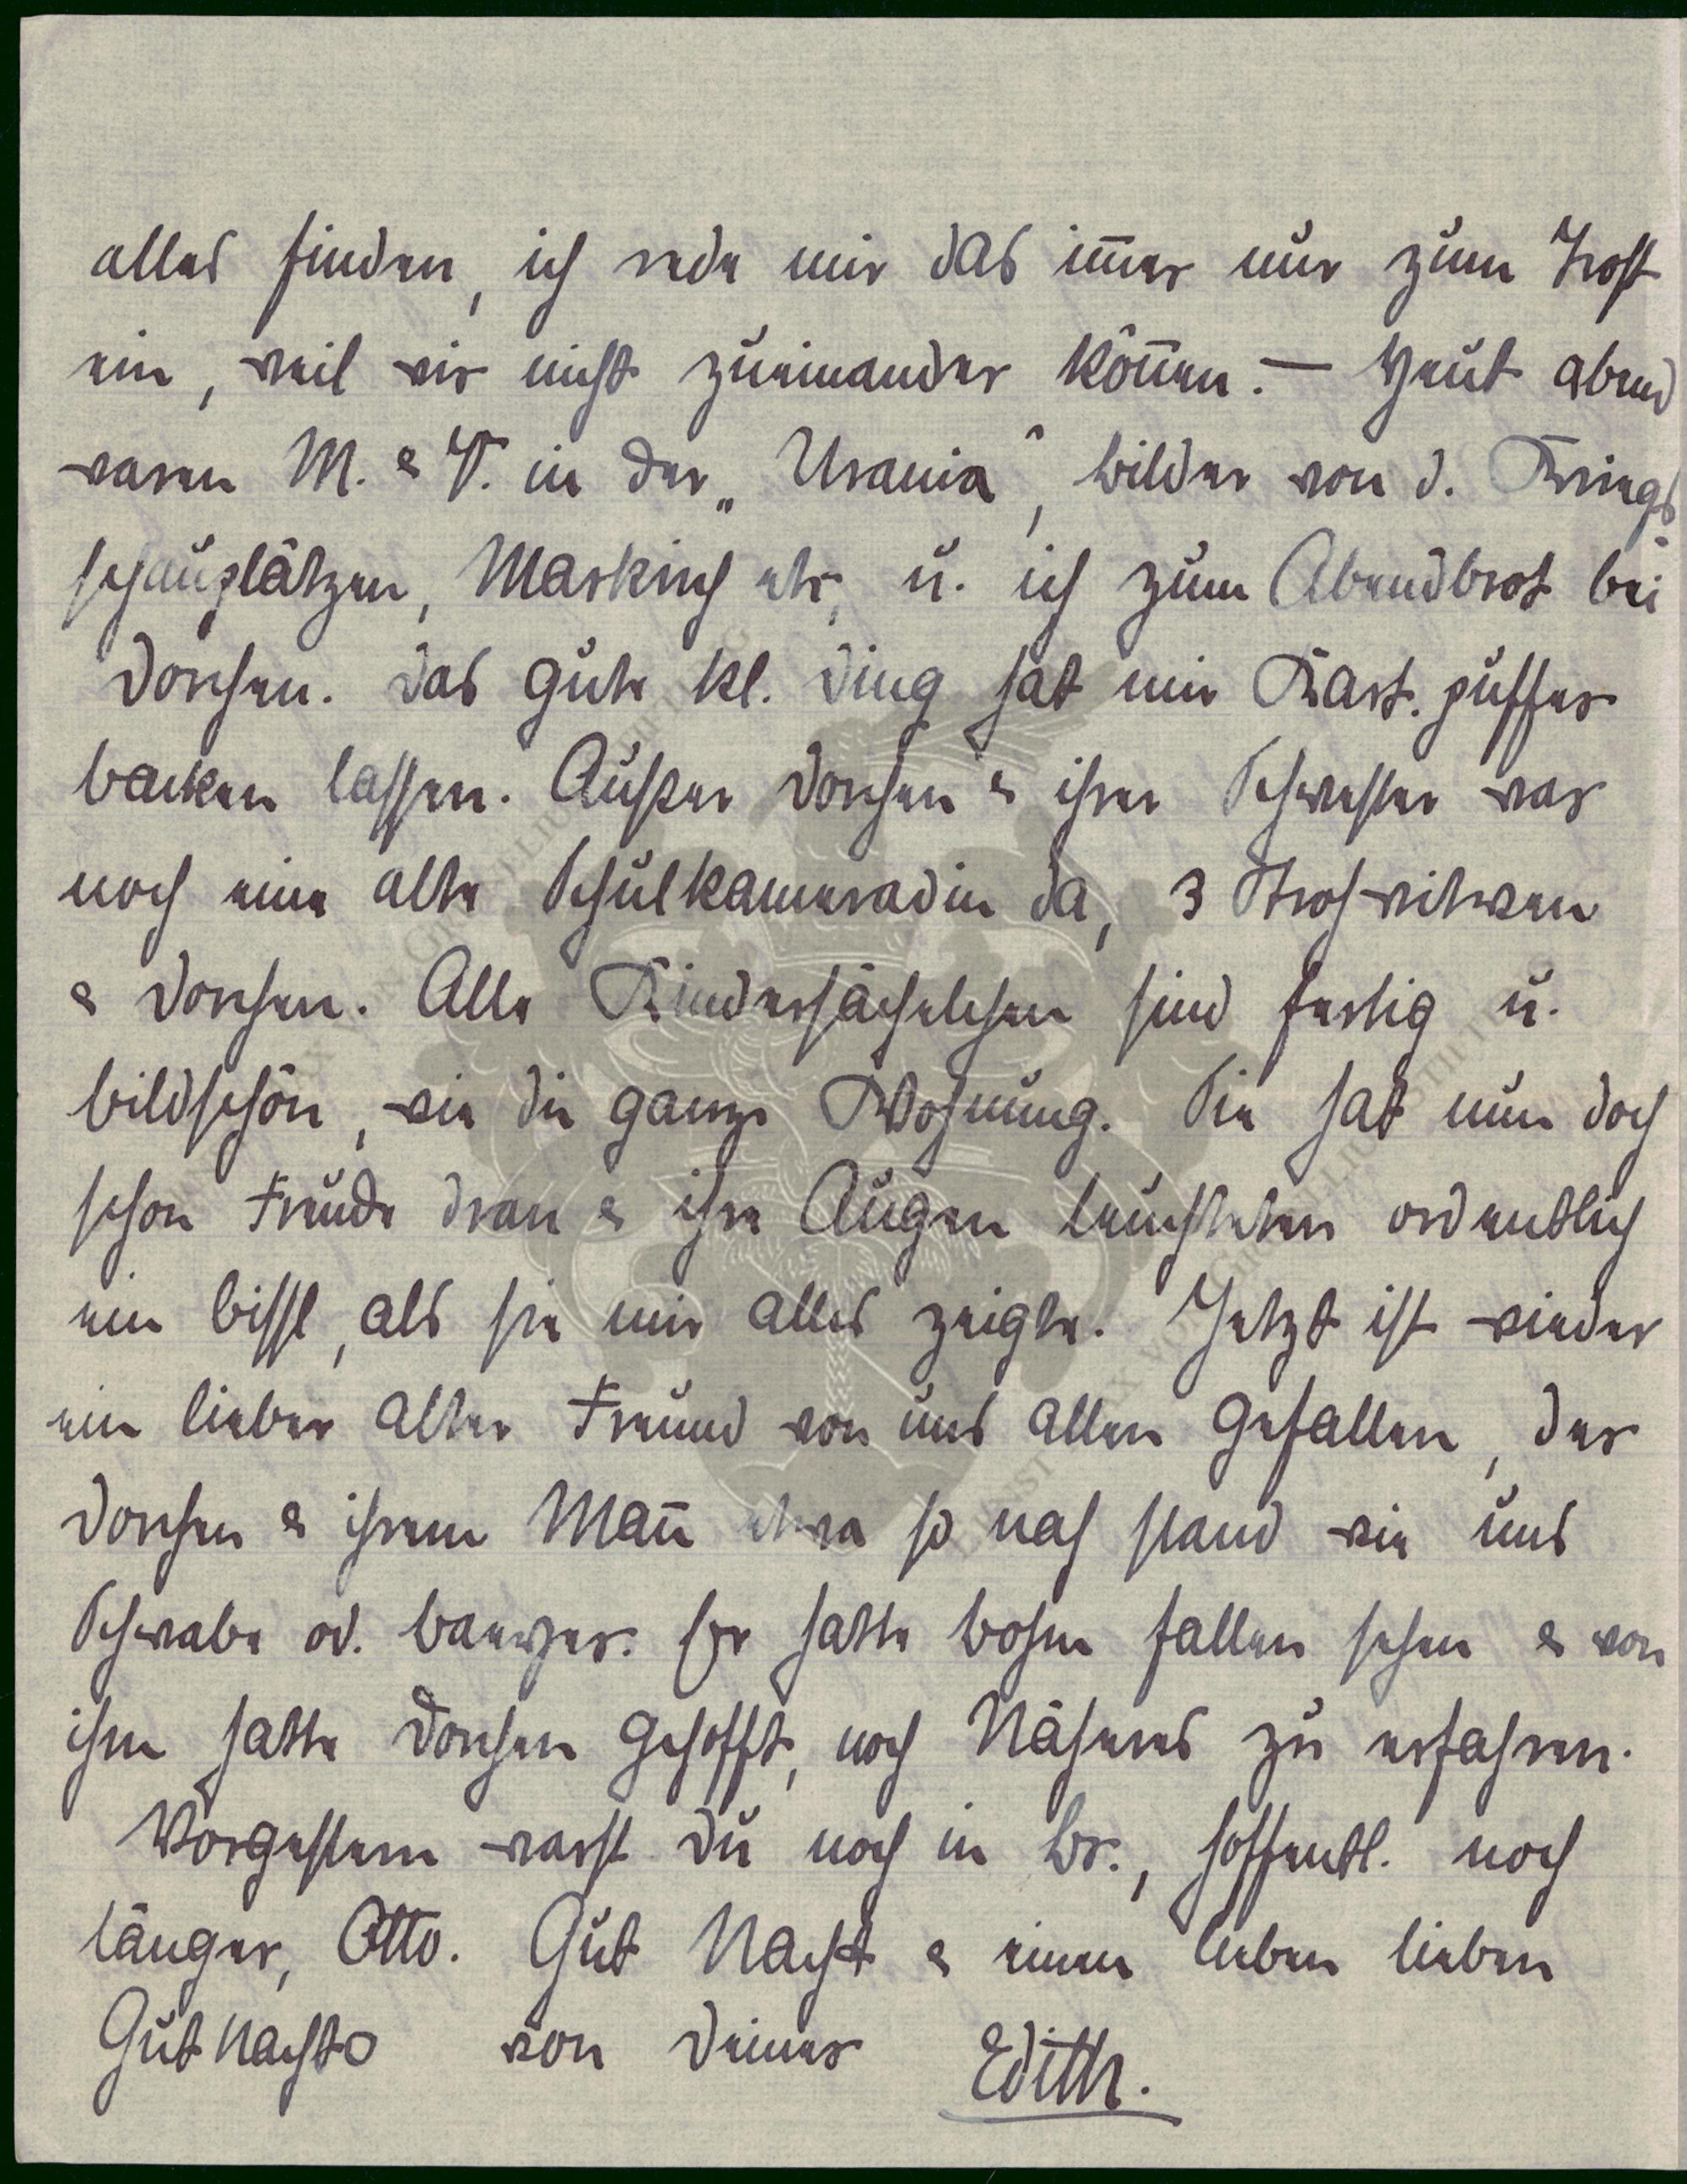 alles finden, ich rede mir das im̄er nur zum Trost
ein, weil wir nicht zueinander kön̄en. — Heut abend
waren M. & V. in der „Urania“, Bilder von d. Kriegs
schauplätzen, Markirch etc, u. ich zum Abendbrot bei
Dorchen. Das gute kl. Ding hat mir Kart. puffer
backen lassen. Außer Dorchen & ihrer Schwester war
noch eine alte Schulkameradin da, 3 Strohwitwen
& Dorchen. Alle Kindersächelchen sind fertig u.
bildschön, wie die ganze Wohnung. Sie hat nun doch
schon Freude dran & ihre Augen leuchteten ordentlich
ein bissl, als sie mir alles zeigte. Jetzt ist wieder
ein lieber alter Freund von uns allen gefallen, der
Dorchen & ihrem Man̄ etwa so nah stand wie uns
Schwabe od. Er hatte fallen sehen & von
ihm hatte Dorchen gehofft, noch Näheres zu erfahren.
Vorgestern warst Du noch in Br., hoffentl. noch
länger, Otto. Gut Nacht & einen lieben lieben
Gut Nacht o von Deiner Edith.